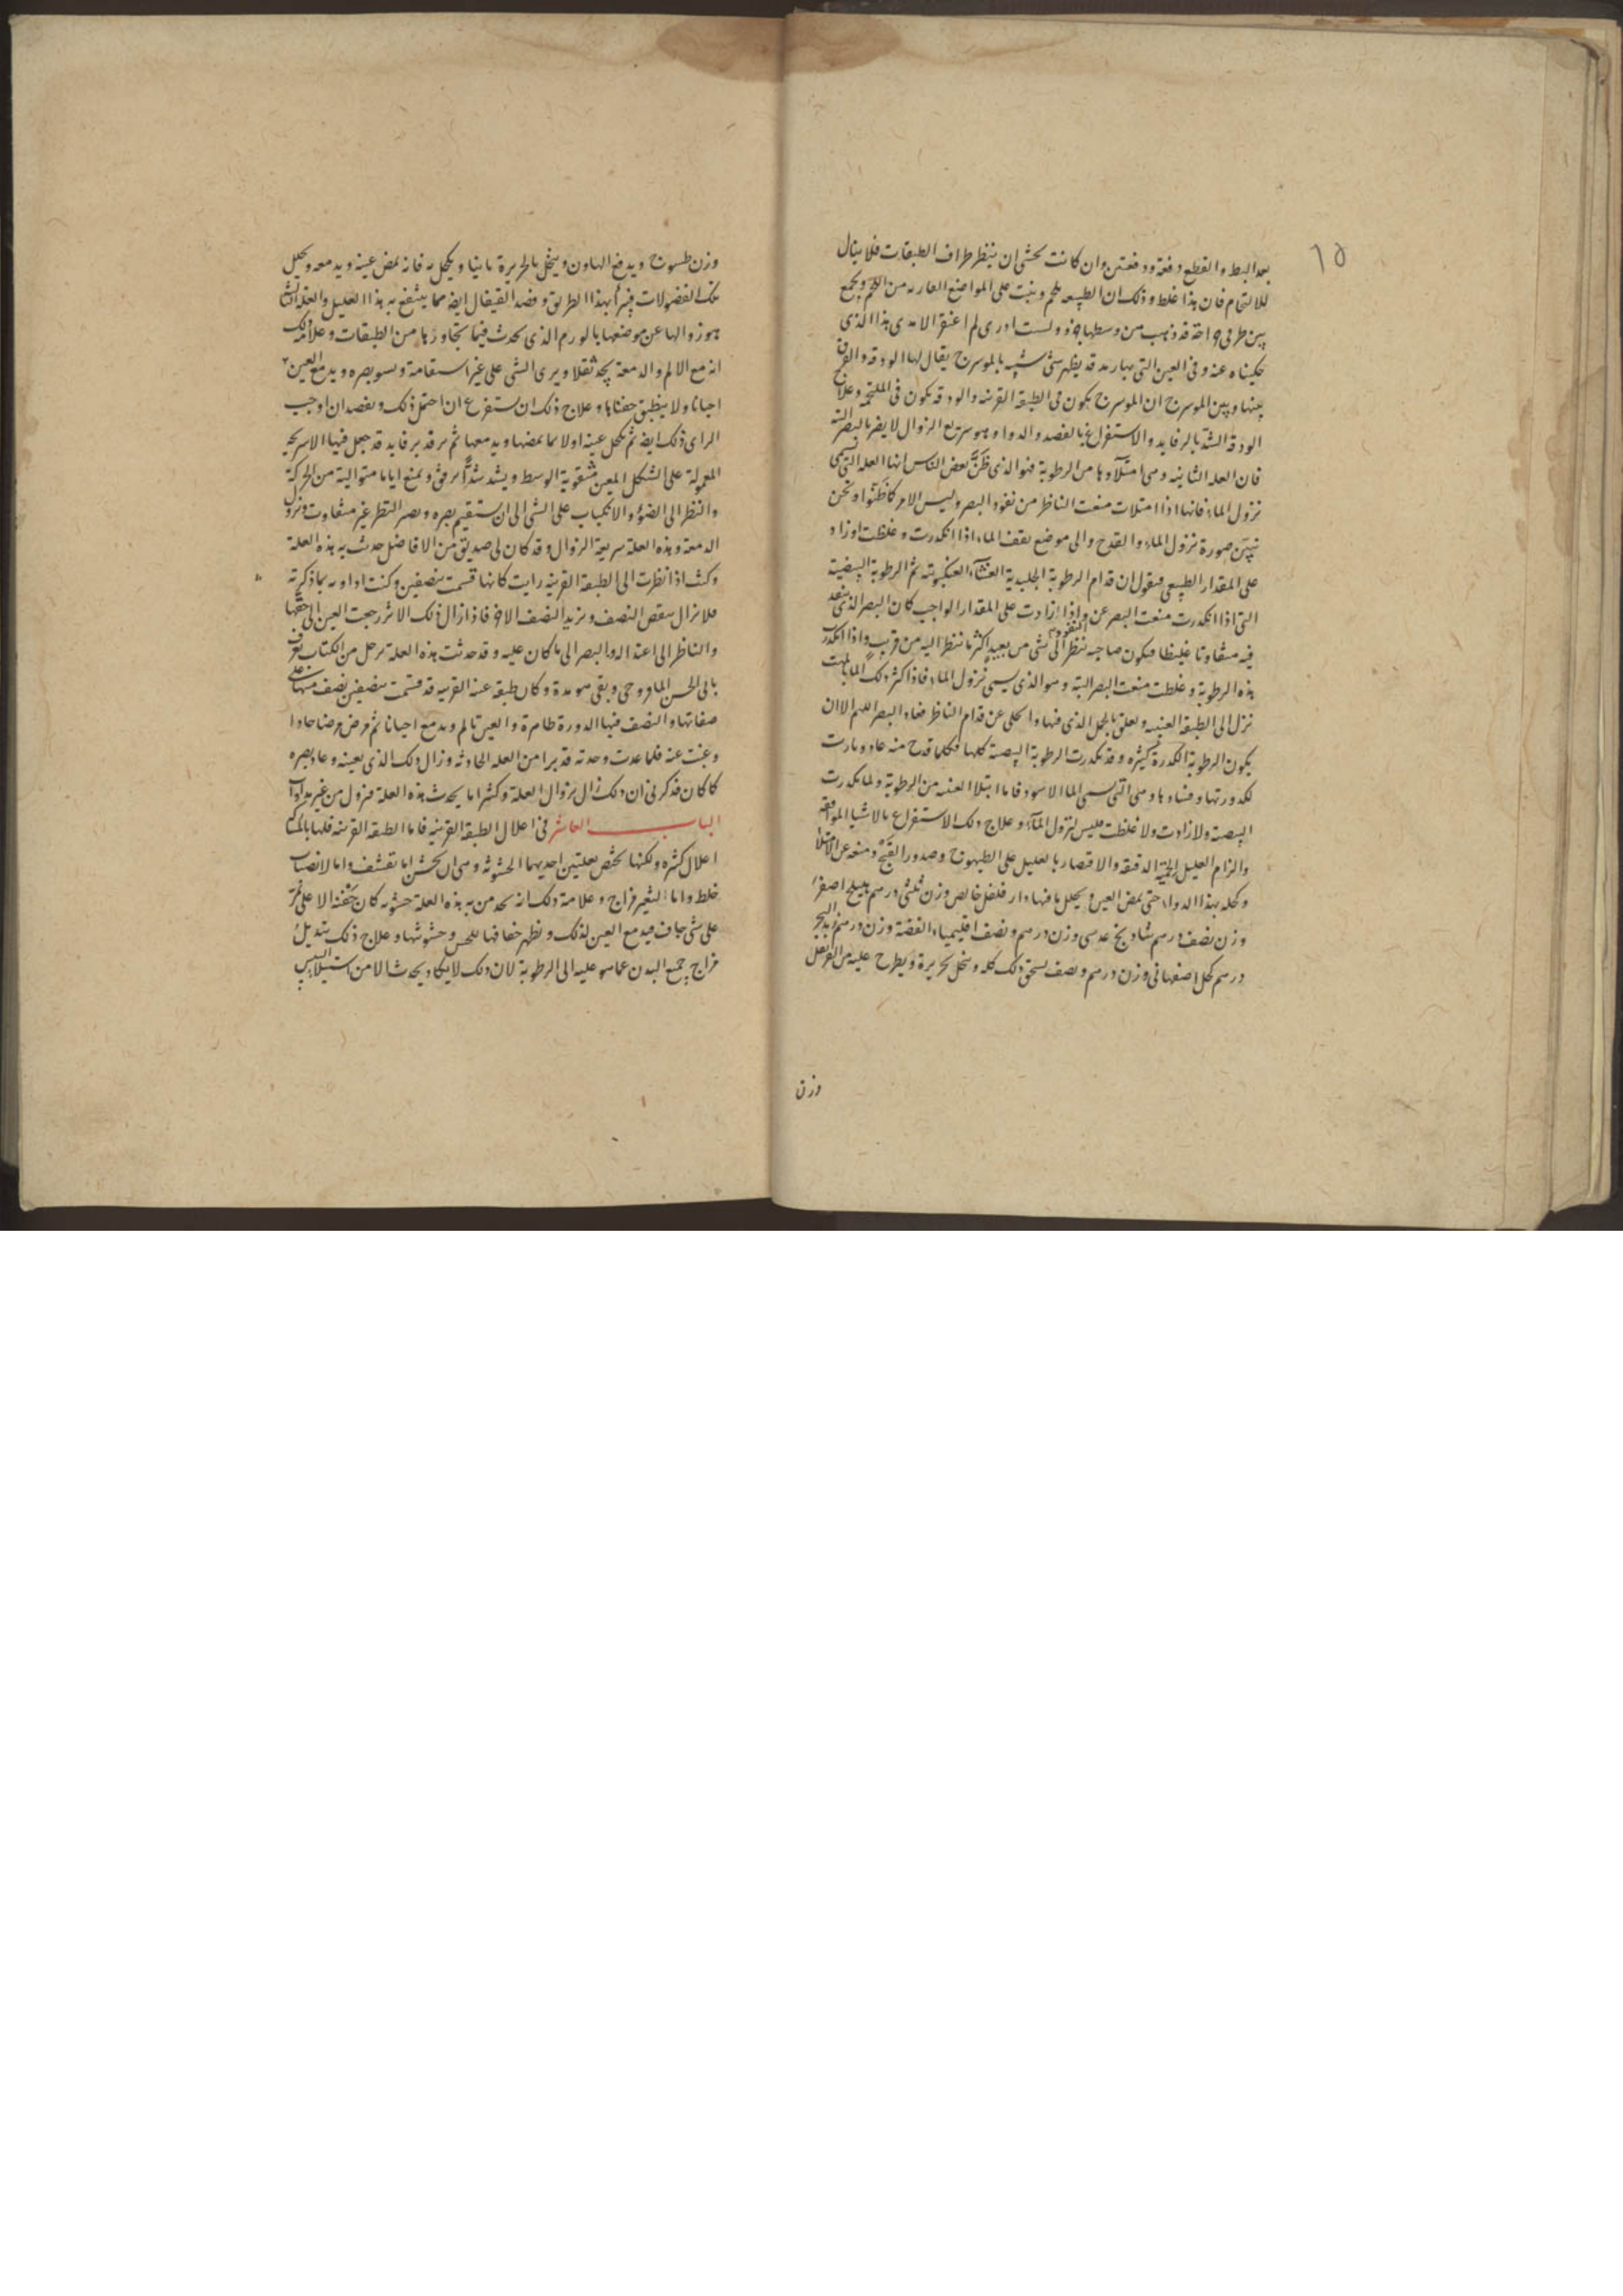 ١٥
بعد البط والقطع دفعة ودفعتين وان كانت تحشى ان ينتظر طراف الطبقات فلا ينال
للالتحام فان هذا غلط وذلك ان الطبيعه تلحم وينبت على المواضع العاريه من اللحم ويجمع
بين طرفى جراحة قد ذهب من وسطها جزو ولست ادرى لم اغتر الامدى بهذا الذى
حكيناه عنه وفى العين التى بها رمد قد يظهر شى شبيه بالموسرج يقال لها الودقه والفرق
بينها وبين الموسرج ان الموسرج يكون فى الطبقة القرنيه والودقه يكون فى الملتحمه وعلاج
الودقة الشد بالرفايد والاستفراغ بالفصد والدواء وهو سريع الزوال لا يضر بالبصر البته
فان العله الثانيه وهى امتلاوها من الرطوبة فهو الذى ظن بعض الناس انها العله التى تسمى
نزول الماء فانها اذا امتلات منعت الناظر من نفوذ البصر وليس الامر كما ظنوا ونحن
نبين صورة نزول الماء والقدح والى موضع يقف الماء اذا انكدرت وغلظت او زاد
على المقدار الطبيعى فنقول ان قدام الرطوبة الجليدية الغشاء العنكبوتيه ثم الرطوبة البيضية
التى اذا انكدرت منعت البصر عن النفوذ واذا ازادت على المقدار الواجب كان البصر الذى ينفد
فيه متفاوتا غليظا فيكون صاحبه ينظر الى شى من بعيد اكثر ما ينظر اليه من قريب واذا انكدرت
هذه الرطوبة وغلظت منعت البصر البته وهو الذى يسمى نزول الماء فاذا كثر ذلك الماء
نزل الى الطبقة العنبيه وتعلق بالخمل الذى فيها وانحلى عن قدام الناظر فعاد البصر اللهم الا ان
يكون الرطوبة الكدرة كثيره وقد تكدرت الرطوبة البيضية كلها فكلما قدح منه عاد وبارت
لكدورتها وفسادها وهى التى تسمى الماء الاسود فاما ابتلاء العنبه من الرطوبة ولما تكدرت
البيضية ولا زادت ولا غلظت فليس بنزول الماء وعلاج ذلك الاستفراغ بالاشياء الموافقه
والزام العليل الحمية الدقيقة والاقتصار بالعليل على الطيهوج وصدور القبج ومنعه عن الامتلاء
وكحله بهذا الدواء حتى يمض العين ويحلل ما فيها دار فلفل خالص وزن ثلثى درهم هليلج اصفر
وزن نصف درهم شاذنج عدسى وزن درهم ونصف اقليمياء الفضة وزن درهم
درهم كحل اصفهانى وزن درهم ونصف يسحق ذلك كله وينخل بحريرة ويطرح عليه من القرنفل
وزن
وزن طسوج ويدفع الهاون وينخل بالحريرة ثانيا ويكحل به فانه يمض عينه ويدمعه ويحلل
تلك الفضولات فيبرا بهذا الطريق وفصد القيفال ايضا مما ينتفع به هذا العليل والعلة الثالثة
هو زوالها عن موضعها بالورم الذى يحدث فيما يتجاوزها من الطبقات وعلامة ذلك
انه مع الالم والدمعة يجد ثقلا ويرى الشى على غير استقامة ويسو بصره ويدمع العين
احيانا ولا ينطبق جفناها وعلاج ذلك ان يستفرغ ان احتمل ذلك ويفصد ان اوجب
الراى ذلك ايضا ثم يكحل عينه اولا بما يمضها ويدمعها ثم يرفد برفايد قد جعل فيها الاسربيه
المعمولة على الشكل المعين مثقوبة الوسط ويشد شدا برفق ويمنع اياما متوالية من الحركة
والنظر الى الضوء والانكباب على الشى الى ان يستقيم بصره ويصير النظر غير متفاوت ويزول
الدمعة وهذه العلة سريعة الزوال وقد كان لى صديق من الافاضل حدث به هذه العلة
وكنت اذا نظرت الى الطبقة القرنيه رايت كانها قسمت بنصفين وكنت اداويه بما ذكرته
فلا يزال ينقص النصف ويزيد النصف الاخر فاذا زال ذلك الاثر رجعت العين الى حقها
والناظر الى اعتداله والبصر الى ما كان عليه وقد حدثت هذه العلة برجل من الكتاب يعرف
بابى الحسن الماوروحى وبقى هو مدة وكان طبقة عينه القرنيه قد قسمت بنصفين نصف منها على
صفائها والنصف فيها الدورة ظاهرة والعين تالم ويدمع احيانا ثم مرض مرضا حادا
وغبت عنه فلما عدت وجدته قد برا من العله الحادثه وزال ذلك الذى بعينه وعاد بصره
كما كان فذكر لى ان ذلك زال بزوال العلة وكثيرا ما يحدث هذه العلة فيزول من غير مداواة
الباب العاشر فى اعلال الطبقة القرنيه فاما الطبقة القرنيه فلها بالمشاركة
اعلال كثيره ولكنها تختص بعلتين احديهما الخشونه وهى ان يخشن اما بقشف واما لانصباب
خلط واما لتغير مزاج وعلامة ذلك انه يجد من به هذه العلة خشونه كان جفنه الاعلى يمر
على شى جاف فيدمع العين لذلك ويظهر جفافها للحس وخشونتها وعلاج ذلك تبديل
مزاج جميع البدن عما هو عليه الى الرطوبة لان ذلك لا يكاد يحدث الا من استيلاء اليبس